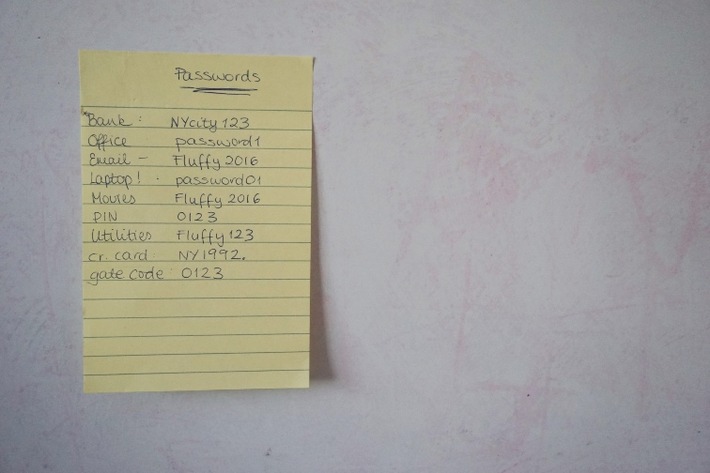 Passwords
Bank: NYcity 123
Office password1
Email - Fluffy 2016
Laptop! · password01
Movies Fluffy 2016
PIN 0123
Utilities Fluffy 123
cr. card NY1992.
gate code 0123